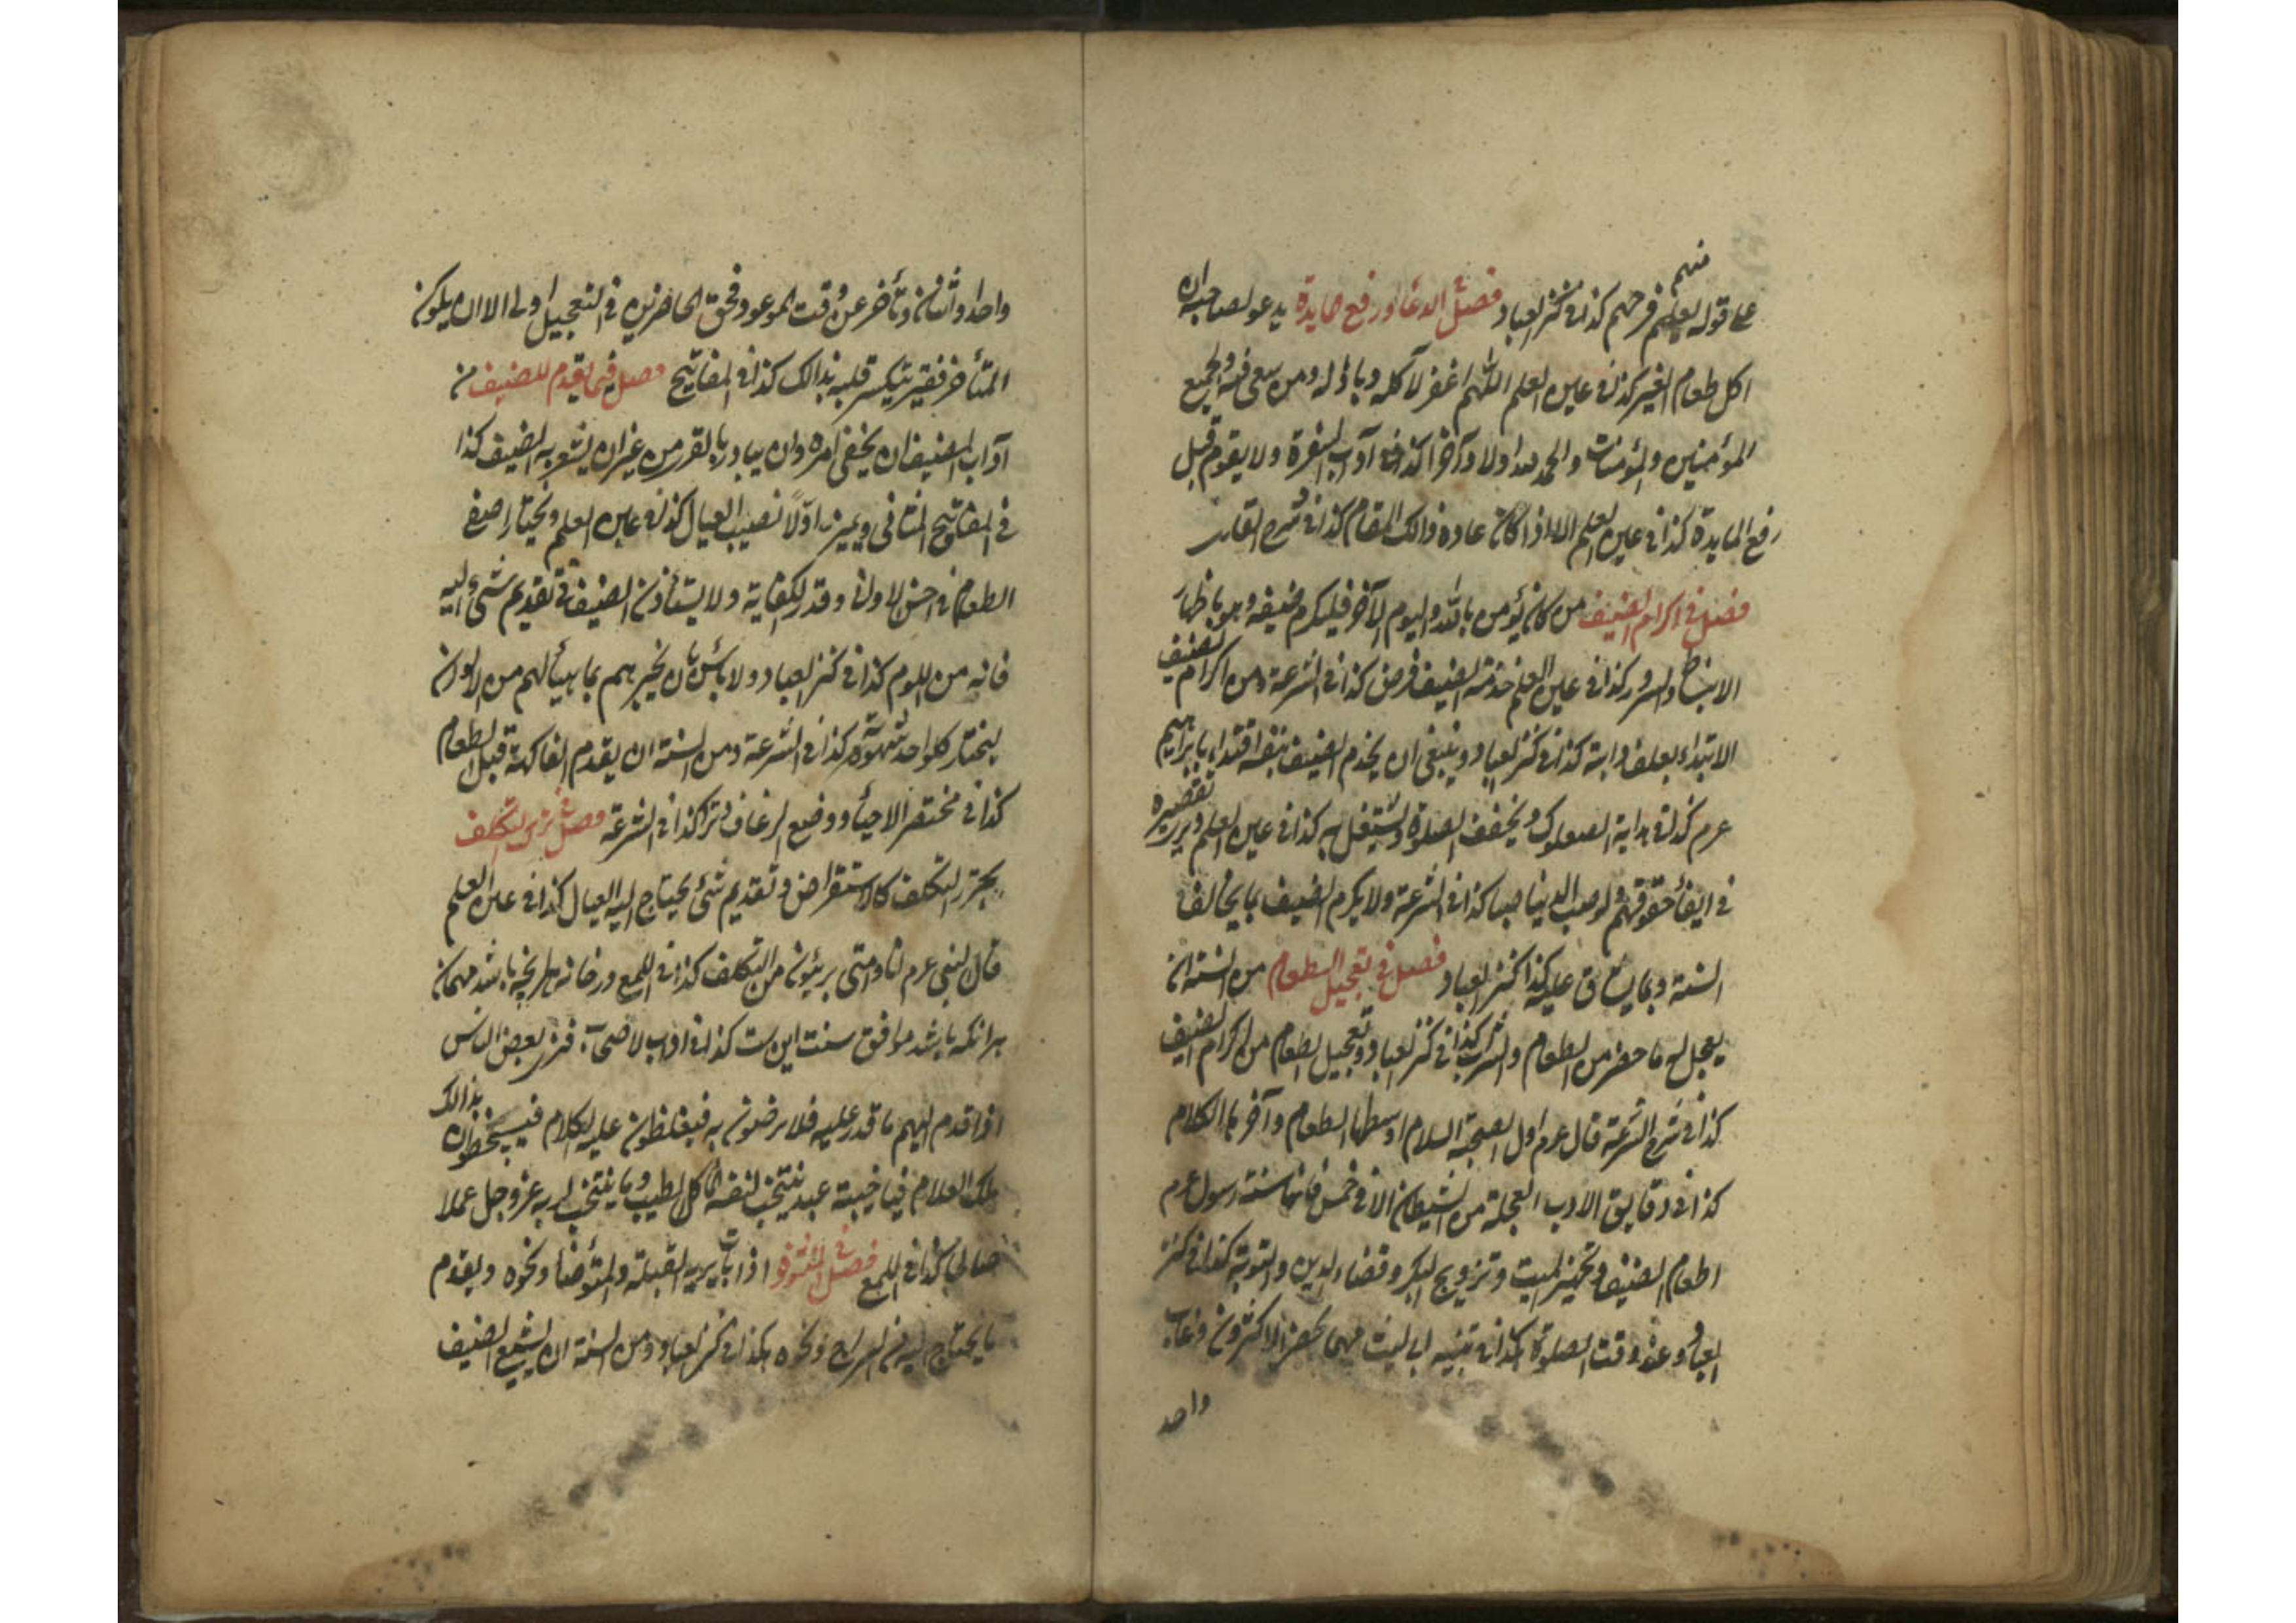 منهم
على قوله لعلهم فرحهم كذا في كنز العباد فصل الدعا ورفع مايدة يدعو لصاحبه ان
اكل طعام الغير كذا في عين العلم اللهم اغفر لآكله وباذله ومن سعى فيه ولجميع
المؤمنين والمؤمنات والحمد لله اولا وآخرا كذا في آداب السفرة ولا يقوم قبل
رفع المايدة كذا في عين العلم الا اذا كان عادة ذالك المقام كذا في شرح
فصل في اكرام الضيف من كان يؤمن بالله واليوم الآخر فليكرم ضيفه وهو باظهار
الانبساط والسرور كذا في عين العلم خدمة الضيف فرض كذا في الشرعة ومن اكرام الضيف
الابتداء بعلف دابته كذا في كنز العباد وينبغي ان يخدم الضيف بنفسه اقتداء بابراهيم
عرم كذا في هداية الصعلوك ويخفف الصلوة ويشتغل به كذا في عين العلم ويرى تقصيره
في ايفاء حقوقهم ولو صب الدنيا صبا كذا في الشرعة ولا يكرم الضيف بما يخالف
السنة وبما يشاق عليه كذا كنز العباد فصل في تعجيل الطعام من السنة ان
يعجل له ما حضر من الطعام والشراب كذا في كنز العباد وتعجيل الطعام من اكرام الضيف
كذا في شرح الشرعة قال عرم اول الصحبة السلام اوسطها الطعام وآخرها الكلام
كذا في دقايق الادب العجلة من الشيطان الا في خمس فانها سنة رسول عرم
اطعام الضيف وتجهيز الميت وتزويج البكر وقضاء الدين والتوبة كذا في كنز
العباد وعند وقت الصلوة كذا في تنبيه ابي ليث مهما حضر الاكثرون وغاب
واحد
واحد او اثنان وتأخر عن وقت الموعود فحق الحاضرين في التعجيل اولى الا ان يكون
المتأخر فقير ينكسر قلبه بذالك كذا في المفاتيح فصل فيما يقدم للضيف من
آداب الضيف ان يخفى امره وان يبادر بالقرى من غير ان يشعر به الضيف كذا
في المفاتيح الثاني ويميز اولا نصيب العيال كذا في عين العلم ويختار اصفى
الطعام في احسن الاواني وقدر الكفاية ولا يستأذن الضيف في تقديم شيء اليه
فانه من اللوم كذا في كنز العباد ولا بأس بان يخبرهم بما هيأ لهم من الالوان
ليختار كل واحد شهوته كذا في الشرعة ومن السنة ان يقدم الفاكهة قبل الطعام
كذا في مختصر الاحياء ووضع الرغاف وترا كذا في الشرعة فصل في ترك التكلف
يحترز التكلف كالاستقراض وتقديم شيء يحتاج اليه العيال كذا في عين العلم
قال النبي عرم انا وامتى بريئون من التكلف كذا في اللمع در خانه هر چه باشد مهمان
هرانكه باشد موافق سنت اين ست كذا في اداب الاصحاب فترى بعض الناس
اذا قدم اليهم ما قدر عليه فلا يرضون به فيغلظون عليه الكلام فيسخطون بذالك
ملك العلام فيا خيبة عبد ينتخب لنفسه اكل الطيب وما ينتخب لربه عز وجل عملا
صالحا كذا في اللمع فصل في المتفرقة اذا بات يريه القبلة والمتوضأ ونحوه ويقدم
ما يحتاج اليه من السراج ونحوه كذا في كنز العباد ومن السنة ان يشيع الضيف